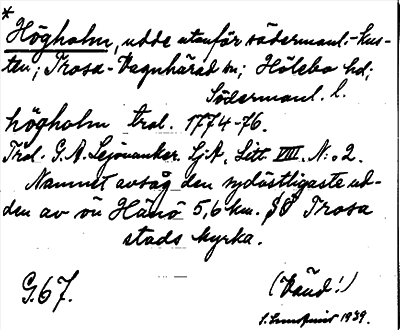 *
Högholm, udde utanför södermanl.-kus-
ten; Trosa-Vagnhärad sn; Hölebo hd;
Södermanl. l.
högholm tral. 1774-76.
Träl. G.A. Lejonanker. SjA, Litt. VIII. N:o 2.
Namnet avsåg den sydöstligaste ud-
den av ön Hånö 5,6 km. SÖ Trosa
stads kyrka.
G.67.
(Vaud!)
1939.